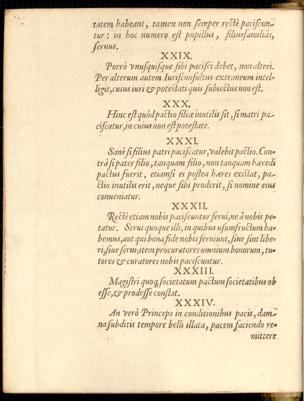 tatem habeant, tamen non semper rectè paciscun-
tur: in hoc numero est pupillus, filiusfamiliâs,
seruus.
XXIX.
Porrò vnusquisque sibi pacisci debet, non alteri.
Per alterum autem Iurisconsultus extraneum intel-
ligit, cuius iuri & potestati quis subiectus non est.
XXX.
Hinc est quòd pactio filiæ inutilis sit, si matri pa-
ciscatur, in cuius non est potestate.
XXXI.
Sanè si filius patri paciscatur, valebit pactio. Con-
trà si pater filio, tanquam filio, non tanquam hæredi
pactus fuerit, etiamsi ei postea hæres existat, pa-
ctio inutilis erit, neque sibi proderit, si nomine eius
conueniatur.
XXXII.
Rectè etiam nobis paciscuntur serui, ne à nobis pe-
tatur. Serui quoque illi, in quibus vsumfructum ha-
bemus, aut qui bona fide nobis seruiunt, siue sint libe-
ri, siue serui, item procuratores omnium bonorum, tu-
tores & curatores nobis paciscuntur.
XXXIII.
Magistri quoq; societatum pactum societatibus ob
esse, & prodesse constat.
XXXIV.
An verò Princeps in conditionibus pacis, dam-
na subditis tempore belli illata, pacem faciendo re-
mittere